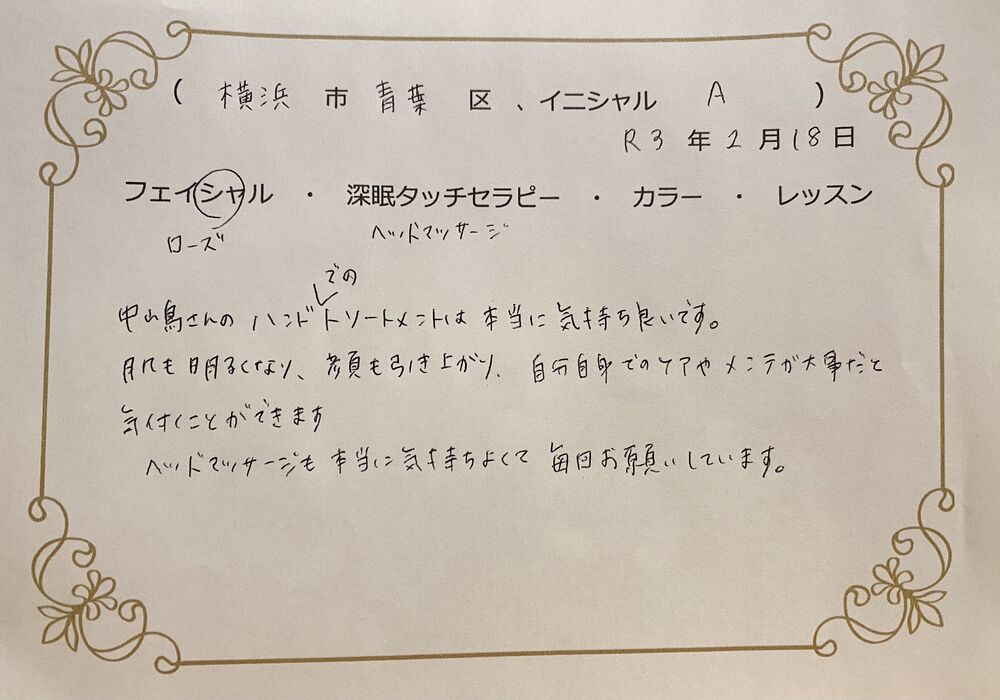 ( 横浜 市 青葉 区 、イニシャル A )
R3 年 2 月 18 日
フェイシャル ・ 深眠タッチセラピー ・ カラー ・ レッスン
ローズ ヘッドマッサージ
での
中山鳥さんの ハンドトリートメントは 本当に 気持ち良いです。
肌も明るくなり、顔も引き上がり、自分自身でのケアやメンテが大事だと
気付くことができます
ヘッドマッサージも 本当に気持ちよくて 毎回お願いしています。